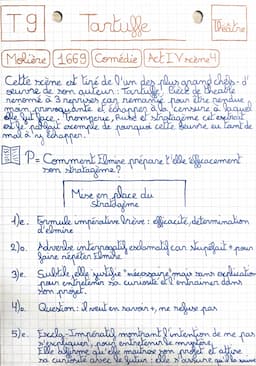 T9
Tartuffe
Théâtre
Molière 1669 Comédie Act IV scène 4
Cette scène est tiré de l'un des plus grand chefs-d'
œuvre de son auteur : Tartuffe. Pièce de théâtre
renomé à 3 reprises car remanié pour être rendue
moin provoquante et échapper à la censure à laquel
elle fut face. Tromperie, Ruse et stratagème cet extrait
est le parfait exemple de pourquoi cette œuvre eu tant de
mal à y échapper.
P= Comment Elmire prépare t'elle efficacement
son stratagème ?
Mise en place du
stratagème
1)e. Formule impérative brève : efficacité, détermination
d'Elmire
2)o. Adverbe interrogatif exclamatif car stupéfait + pour
faire répéter Elmire.
3)e. Subtile, elle justifie "nécessaire" mais sans explication
pour entretenir sa curiosité et l'entrainer dans
son projet.
4)o. Question : il veut en savoir +, ne refuse pas
5)e. Excla-Impératif montrant l'intention de ne pas
s'expliquer, pour entretenir le mystère.
Elle affirme qu'elle maitrise son projet et attise
sa curiosité avec le futur : elle s'assure qu'il la suive